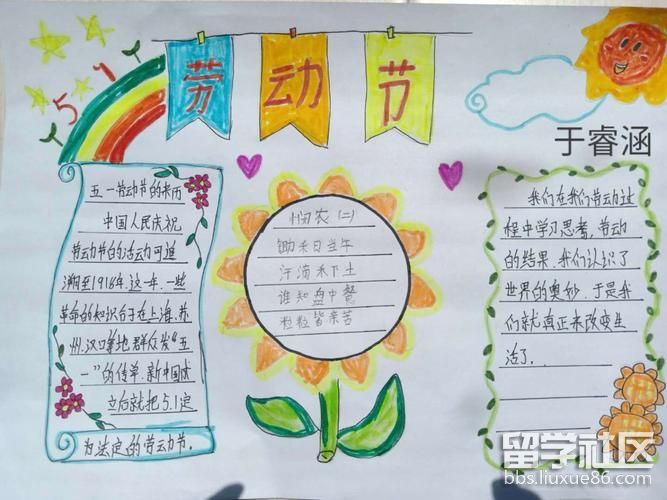 51
劳动节
于睿涵
五一劳动节的来历
中国人民庆祝
劳动节的活动可追
溯至1918年.这一年.一些
革命的知识分子在上海.苏
州.汉口等地群众发“五
一”的传单.新中国成
立后就把5.1定
为法定的劳动节.
悯农(二)
锄禾日当午
汗滴禾下土
谁知盘中餐
粒粒皆亲苦
我们在我们劳动过
程中学习思考.劳动
的结果.我们认识了
世界的奥妙.于是我
们就真正来改变生
活了.
留学社区
bbs.liuxue86.com